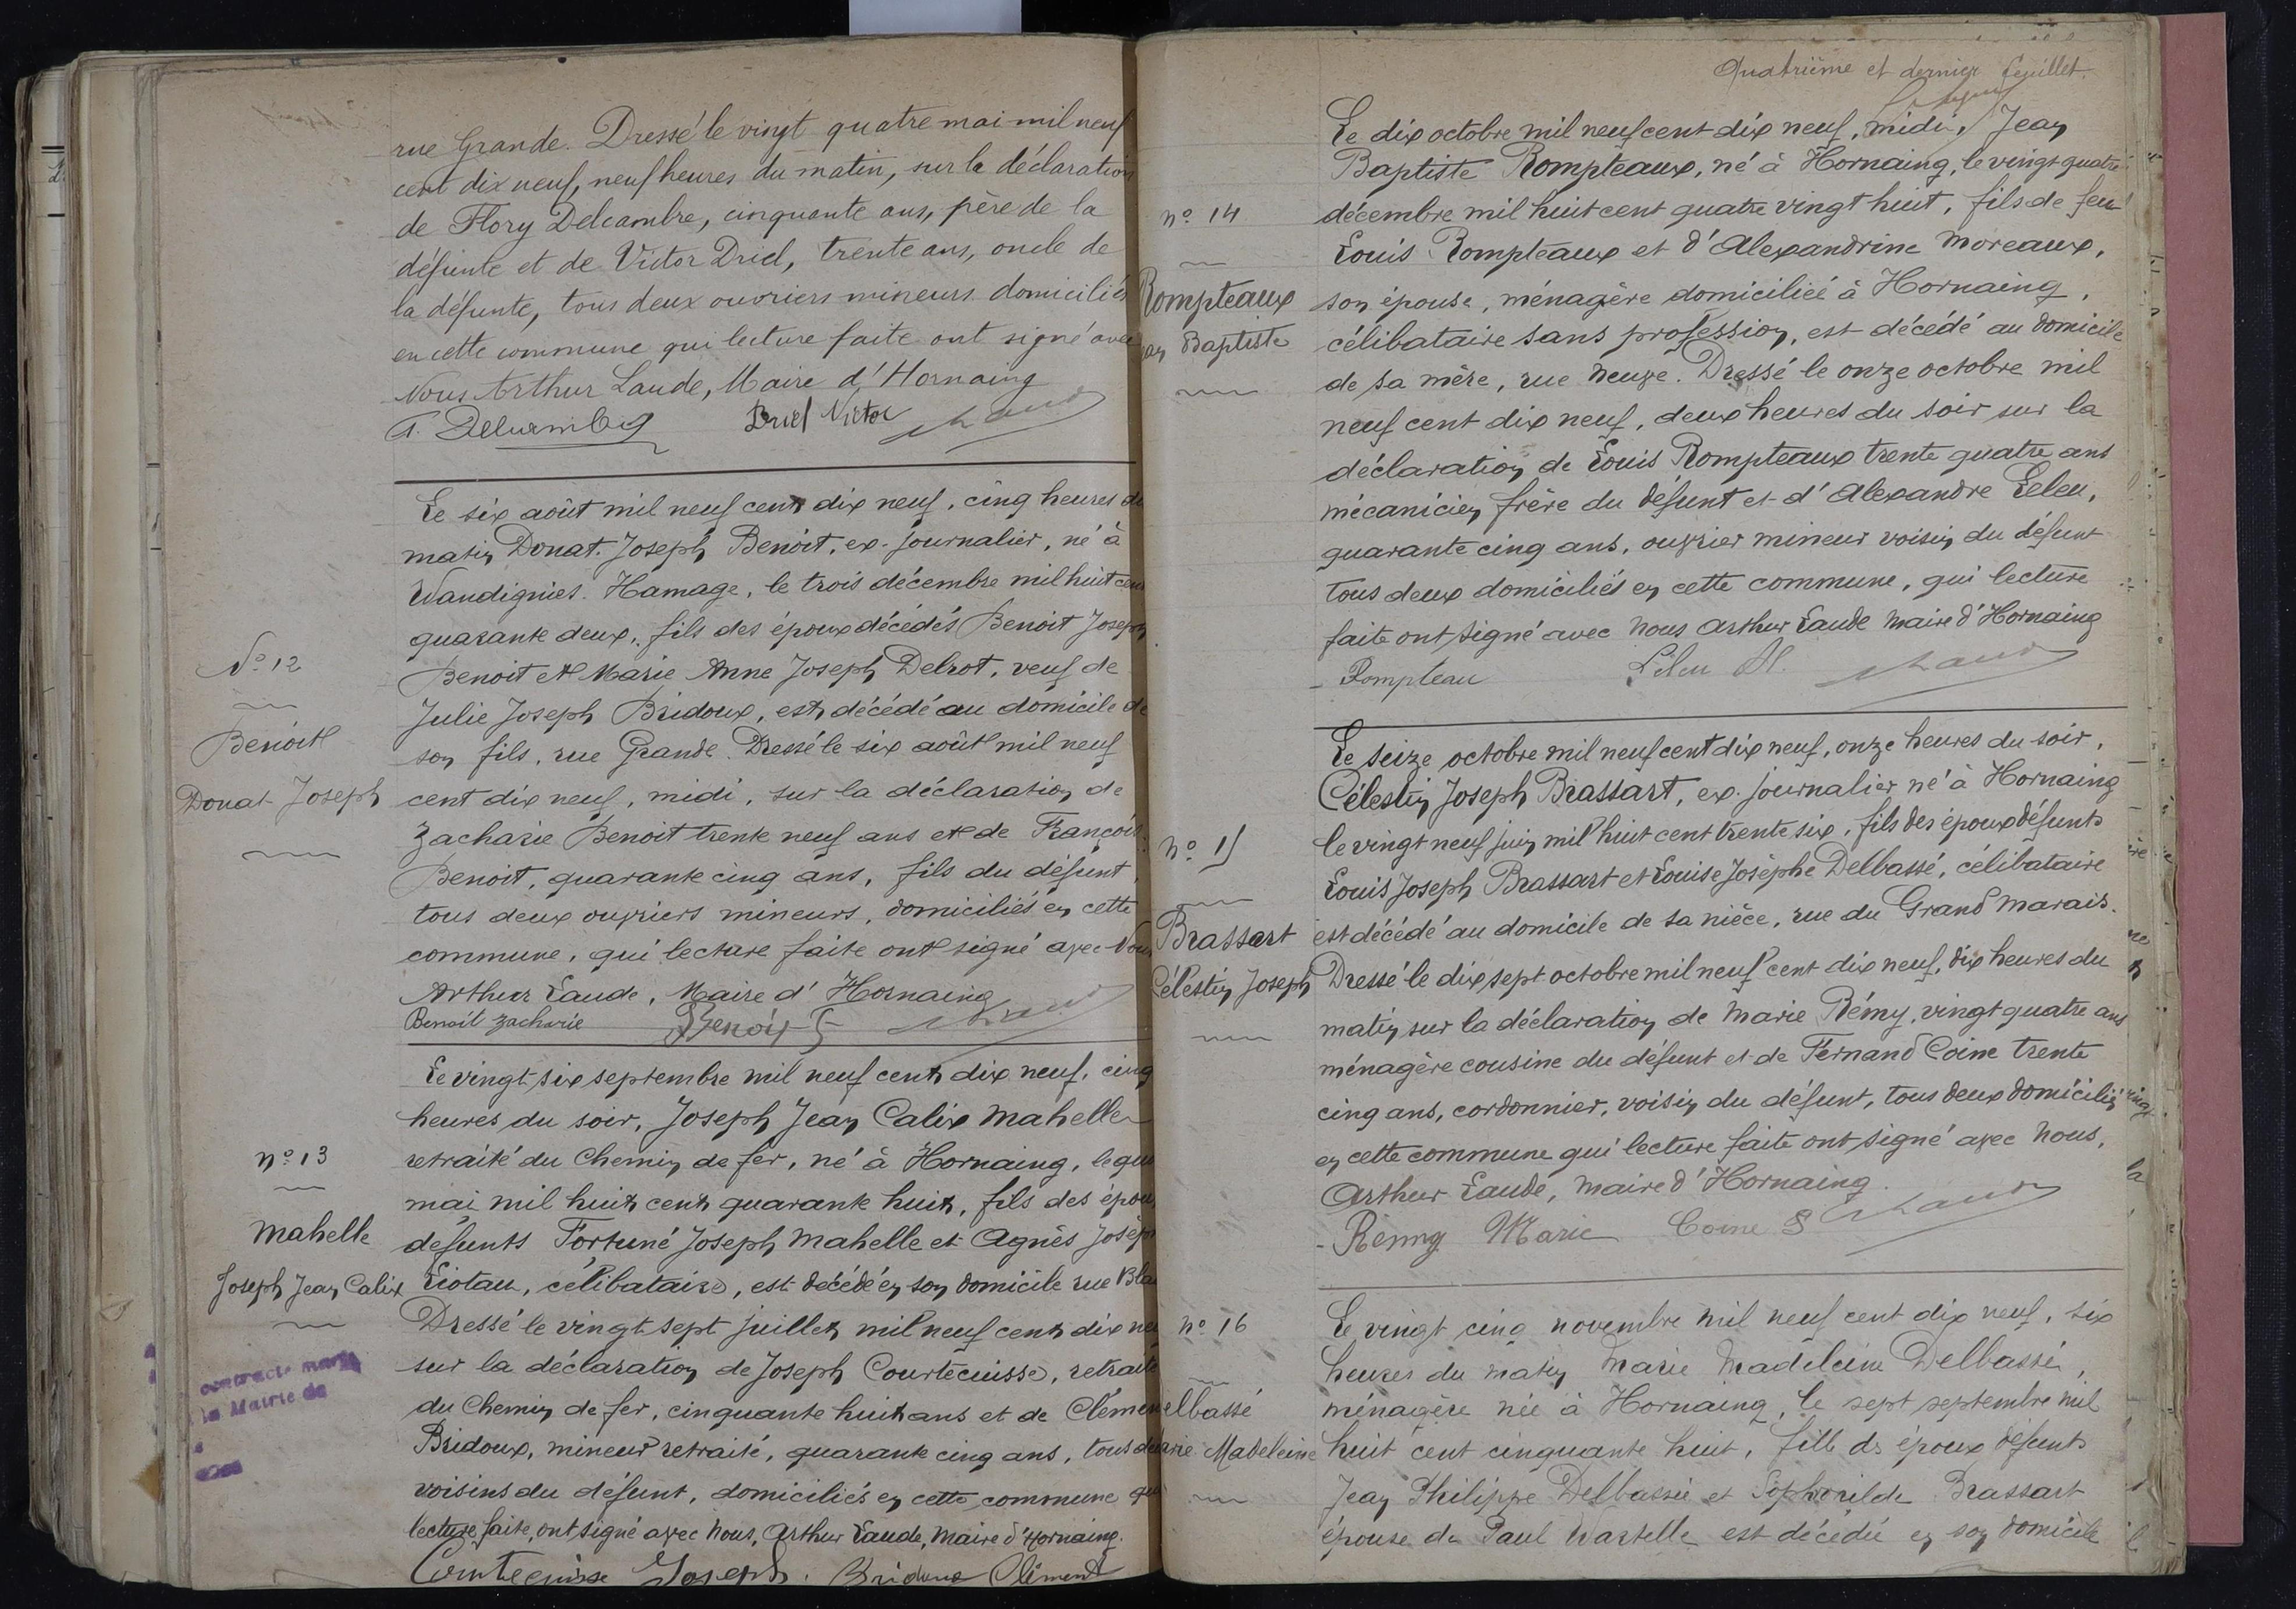 rue Grande. Dressé le vingt quatre mai mil neuf
cent dix neuf, neuf heures du matin, sur la déclaration
de Flory Delcambre, cinquante ans, père de la
défunte et de Victor Driel, trente ans, oncle de
la défunte, tous deux ouvriers mineurs domiciliés
en cette commune qui lecture faite ont signé avec
Nous Arthur Laude, Maire d'Hornaing
Driel Victor
Le six août mil neuf cent dix neuf, cinq heures du
matin Donat Joseph Benoit, ex-journalier, né à
Wandignies-Hamage, le trois décembre mil huit cent
quarante deux, fils des époux décédés Benoit Joseph
N° 12
Benoit et Marie Anne Joseph Delrot, veuf de
Julie Joseph Bridoux, est décédé au domicile de
Benoit
son fils, rue Grande. Dressé le six août mil neuf
Donat Joseph
cent dix neuf, midi, sur la déclaration de
Zacharie Benoit trente neuf ans et de François
Benoit, quarante cinq ans, fils du défunt,
tous deux ouvriers mineurs, domiciliés en cette
commune, qui lecture faite ont signé avec Nous
Arthur Laude, Maire d'Hornaing
Benoit Zacharie Benoit
Le vingt-six septembre mil neuf cent dix neuf, cinq
heures du soir, Joseph Jean Calix Mahelle
n° 13
retraité du Chemin de fer, né à Hornaing, le
mai mil huit cent quarante huit, fils des époux
Mahelle
défunts Fortuné Joseph Mahelle et Agnès Josèphe
Joseph Jean Calix
Liotau, célibataire, est décédé en son domicile rue
Dressé le vingt sept juillet mil neuf cent dix neuf
sur la déclaration de Joseph Courtecuisse, retraité
du Chemin de fer, cinquante huit ans et de Clément
Bridoux, mineur retraité, quarante cinq ans, tous deux
voisins du défunt, domiciliés en cette commune qui
lecture faite, ont signé avec Nous, Arthur Laude, Maire d'Hornaing.
Courtecuisse Joseph. Bridoux Clément
la Mairie de
Quatrième et dernier feuillet.
Le dix octobre mil neuf cent dix neuf, midi, Jean
Baptiste Rompteaux, né à Hornaing, le vingt-quatre
n° 14
décembre mil huit cent quatre vingt huit, fils de feu
Louis Rompteaux et d'Alexandrine Moreaux,
Rompteaux
son épouse, ménagère domiciliée à Hornaing,
Baptiste
célibataire sans profession, est décédé au domicile
de sa mère, rue Neuve. Dressé le onze octobre mil
neuf cent dix neuf, deux heures du soir sur la
déclaration de Louis Rompteaux trente quatre ans
mécanicien frère du défunt et d'Alexandre Leleu,
quarante cinq ans, ouvrier mineur voisin du défunt
tous deux domiciliés en cette commune, qui lecture
faite ont signé avec Nous Arthur Laude Maire d'Hornaing
Rompteau Leleu A.
Le seize octobre mil neuf cent dix neuf, onze heures du soir,
Célestin Joseph Brassart, ex-journalier né à Hornaing
n° 15
le vingt neuf juin mil huit cent trente six, fils des époux défunts
Louis Joseph Brassart et Louise Josèphe Delbassé, célibataire
Brassart
est décédé au domicile de sa nièce, rue du Grand Marais.
Célestin Joseph
Dressé le dix sept octobre mil neuf cent dix neuf, dix heures du
matin sur la déclaration de Marie Rémy, vingt quatre ans
ménagère cousine du défunt et de Fernand Coine trente
cinq ans, cordonnier, voisin du défunt, tous deux domiciliés
en cette commune qui lecture faite ont signé avec Nous,
Arthur Laude, Maire d'Hornaing.
Rémy Marie Coine
n° 16
Le vingt cinq novembre mil neuf cent dix neuf, six
heures du matin Marie Madeleine Delbassé,
elbassé
ménagère née à Hornaing, le sept septembre mil
arie Madeleine
huit cent cinquante huit, fille ds époux défunts
Jean Philippe Delbassé et Sophonilde Brassart
épouse de Paul Wartelle est décédée en son domicile